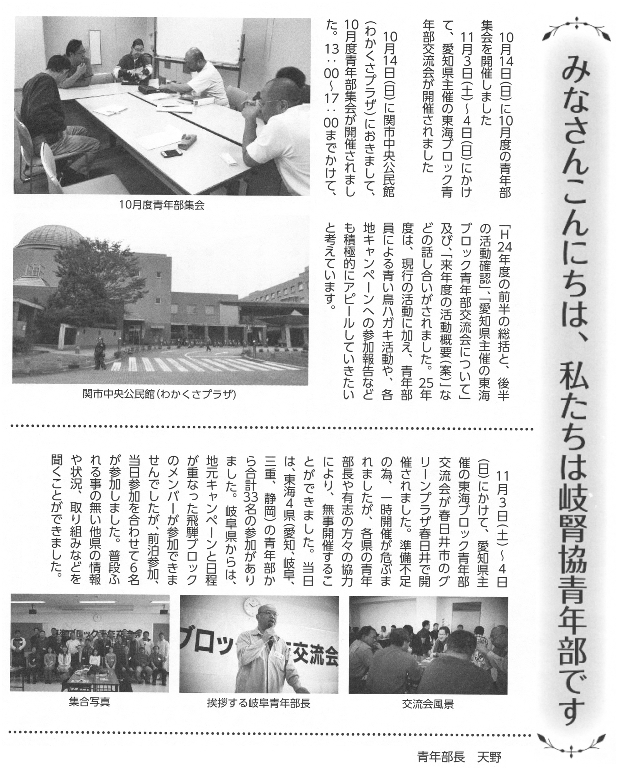 みなさんこんにちは、私たちは岐腎協青年部です
10月14日(日)に10月度の青年部
集会を開催しました
11月3日(土)~4日(日)にかけ
て、愛知県主催の東海ブロック青
年部交流会が開催されました
10月14日(日)に関市中央公民館
(わかくさプラザ)におきまして、
10月度青年部集会が開催されまし
た。13:00~17:00までかけて、
「H24年度の前半の総括と、後半
の活動確認」「愛知県主催の東海
ブロック青年部交流会について」
及び、「来年度の活動概要(案)」な
どの話し合いがされました。25年
度は、現行の活動に加え、青年部
員による青い鳥ハガキ活動や、各
地キャンペーンへの参加報告など
も積極的にアピールしていきたい
と考えています。
10月度青年部集会
関市中央公民館(わかくさプラザ)
11月3日(土)~4日
(日)にかけて、愛知県主
催の東海ブロック青年部
交流会が春日井市のグ
リーンプラザ春日井で開
催されました。準備不足
の為、一時開催が危ぶま
れましたが、各県の青年
部長や有志の方々の協力
により、無事開催するこ
とができました。当日
は、東海4県(愛知、岐阜、
三重、静岡)の青年部か
ら合計33名の参加があり
ました。岐阜県からは、
地元キャンペーンと日程
が重なった飛騨ブロック
のメンバーが参加できま
せんでしたが、前泊参加、
当日参加を合わせて6名
が参加しました。普段ふ
れる事の無い他県の情報
や状況、取り組みなどを
聞くことができました。
集合写真
ブロック
交流会
挨拶する岐阜青年部長
交流会風景
青年部長 天野